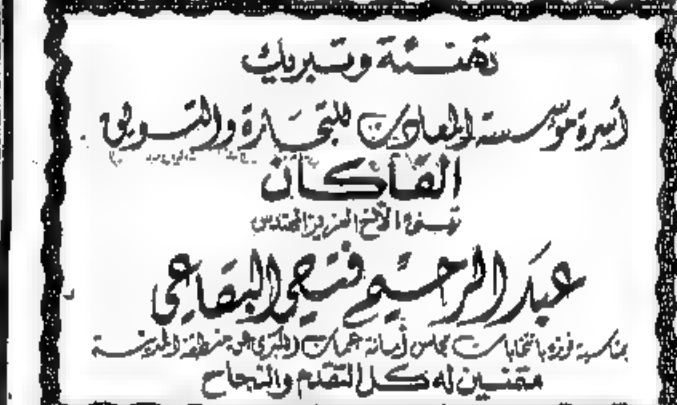 تهنئة وتبريك
أسرة مؤسسة المعادي للتجارة والتسويق
القاكان
تهنئ الأخ العزيز المهندس
عبد الرحيم فتحي البقاعي
بمناسبة فوزه بانتخابات مجلس أمانة عمان الكبرى عن منطقة المدينة
متمنين له كل التقدم والنجاح